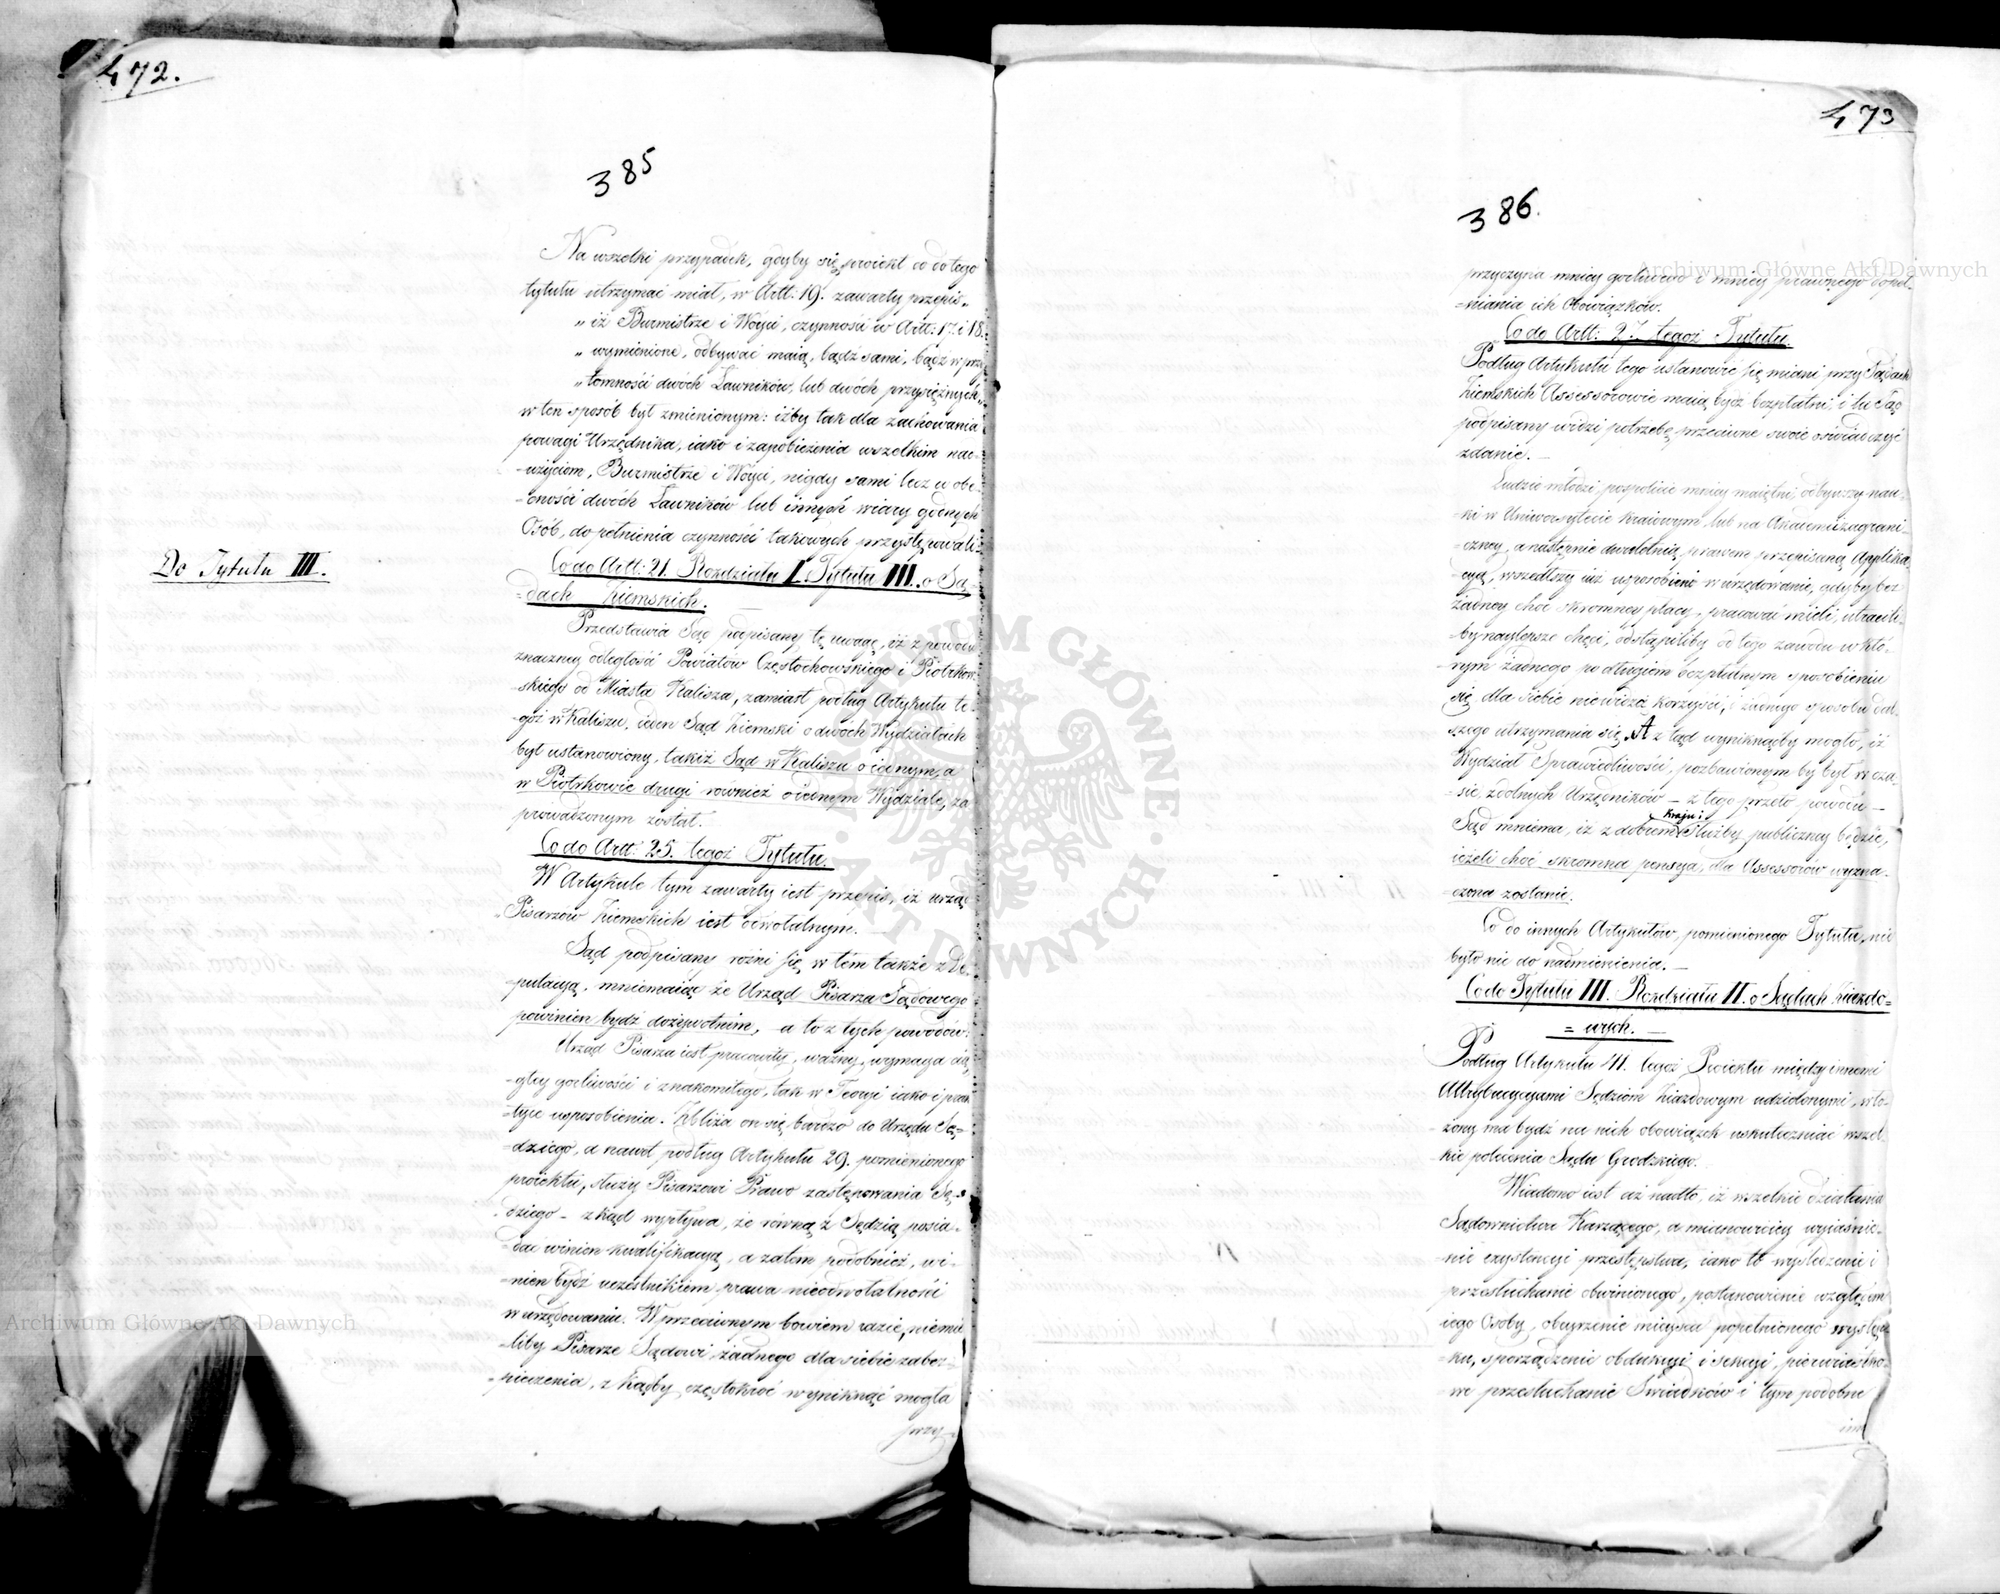 472.
385
Na wszelki przypadek, gdyby się proiekt co do tego
tytułu utrzymać miał, w Artt: 19. zawarty przepis „
„ iż Burmistrze i Wóyci, czynności w Artt: 17. i 18.
„ wymienione, odbywać maią, bądź sami, bądź w przy
„ tomności dwóch Ławników, lub dwóch przysiężnych „
w ten sposób był zmienionym: iżby tak dla zachowania
powagi Urzędnika, iako i zapobieżenia wszelkim nad-
-użyciom, Burmistrze i Wóyci, nigdy sami lecz w obe-
-cności dwóch Ławników lub innych wiary godnych
Osób, do pełnienia czynności takowych przystępowali.
Do Tytułu III.
Co do Artt: 21. Rozdziału I. Tytułu III. o Są-
-dach Ziemskich.
Przedstawia Sąd podpisany tę uwagę, iż z powodu
znaczney odległości Powiatów Częstochowskiego i Piotrkow-
-skiego od Miasta Kalisza, zamiast podług Artykułu te-
-goż w Kaliszu, ieden Sąd Ziemski o dwóch Wydziałach
był ustanowiony, takiż Sąd w Kaliszu o iednym, a
w Piotrkowie drugi również o iednym Wydziale, za
prowadzonym został.
Co do Artt: 25. tegoż Tytułu.
W Artykule tym zawarty iest przepis, iż urząd
Pisarzów Ziemskich iest odwołalnym. —
Sąd podpisany różni się w tém także z De-
-putacyą, mniemaiąc że Urząd Pisarza Sądowego
powinien bydź dożywotnim, a to z tych powodów:
Urząd Pisarza iest pracowity, ważny, wymaga cią-
-głey gorliwości i znakomitego, tak w Teoryi iako i prak
-tyce usposobienia. Zbliża on się bardzo do Urzędu Sę-
-dziego, a nawet podług Artykułu 29. pomienionego
proiektu, służy Pisarzowi Prawo zastępowania Sę-
-dziego – zkąd wypływa, że równą z Sędzią posia-
-dać winien kwalifikacyą, a zatem podobnież, wi-
-nien bydź uczestnikiem prawa nieodwołalności
w urzędowaniu. W przeciwnym bowiem razie, niemie
-liby Pisarze Sądowi żadnego dla siebie zabez-
-pieczenia, z kądby częstokroć wyniknąć mogła
przy
473
386.
przyczyna mniey gorliwego i mniey prawnego dopeł-
-niania ich Obowiązków.
Co do Artt: 27. tegoż Tytułu
Podług Artykułu tego ustanowić się miani przy Sądach
Ziemskich Assessorowie maią bydź bezpłatni, i tu Sąd
podpisany widzi potrzebę przeciwne swoie oświadczyć
zdanie. —
Ludzie młodzi, pospolicie mniey maiętni, odbywszy nau-
-ki w Uniwersytecie kraiowym, lub na Akademii zagrani-
-czney, a następnie dwuletnią prawem przepisaną Applika
-cyą, wszedłszy iuż usposobieni w urzędowanie, gdyby bez
żadney choć skromney płacy, pracować mieli, utracili-
-by naylepsze chęci, odstąpiliby od tego zawodu w któ-
-rym żadnego po długiem bezpłatnym sposobieniu
się dla siebie niewidzą korzyści, i żadnego sposobu dal-
szego utrzymania się. A z tąd wyniknąćby mogło, iż
Wydział Sprawiedliwości, pozbawionym by był w cza-
-sie zdolnych Urzędników – z tego przeto powodu –
Sąd mniema, iż z dobrem Kraju i Służby publiczney będzie,
ieżeli choć skromna pensya, dla Assessorów wyzna-
-czona zostanie.
Co do innych Artykułów, pomienionego Tytułu, nie
było nic do nadmienienia. —
Co do Tytułu III. Rozdziału II. o Sądach Ziazdo=
= wych. —
Podług Artykułu 41. tegoż Proiektu między innemi
Attrybucyami Sędziom Ziazdowym udzielonymi, wło-
żony ma bydź na nich obowiązek uskuteczniać wszel-
kie polecenia Sądu Grodzkiego.
Wiadomo iest aż nadto, iż wszelkie działania
Sądownictwa Karzącego, a mianowiciey wyiaśnie-
-nie exystencyi przestępstwa, iako to wyśledzenie i
przesłuchanie obwinionego, postanowienie względem
iego Osoby, obeyrzenie mieysca popełnionego występ-
-ku, sporządzenie obdukcyi i sekcyi, pierwiastko-
-we przesłuchanie Świadków i tym podobne
inn
Archiwum Główne Akt Dawnych
Archiwum Główne Akt Dawnych
ARCHIWUM GŁÓWNE · AKT DAWNYCH ·